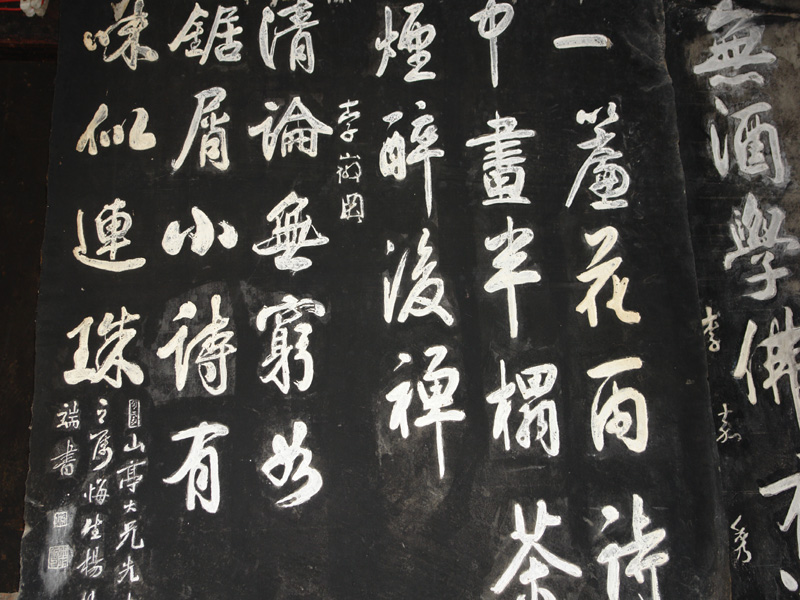 無酒學佛有
李嘉秀
一簾花雨詩
中畫半榻茶
煙醉後禪
李嶶園
清論無窮如
鋸屑小詩有
味似連珠
山亭大兄先
之屬悔生楊
端書